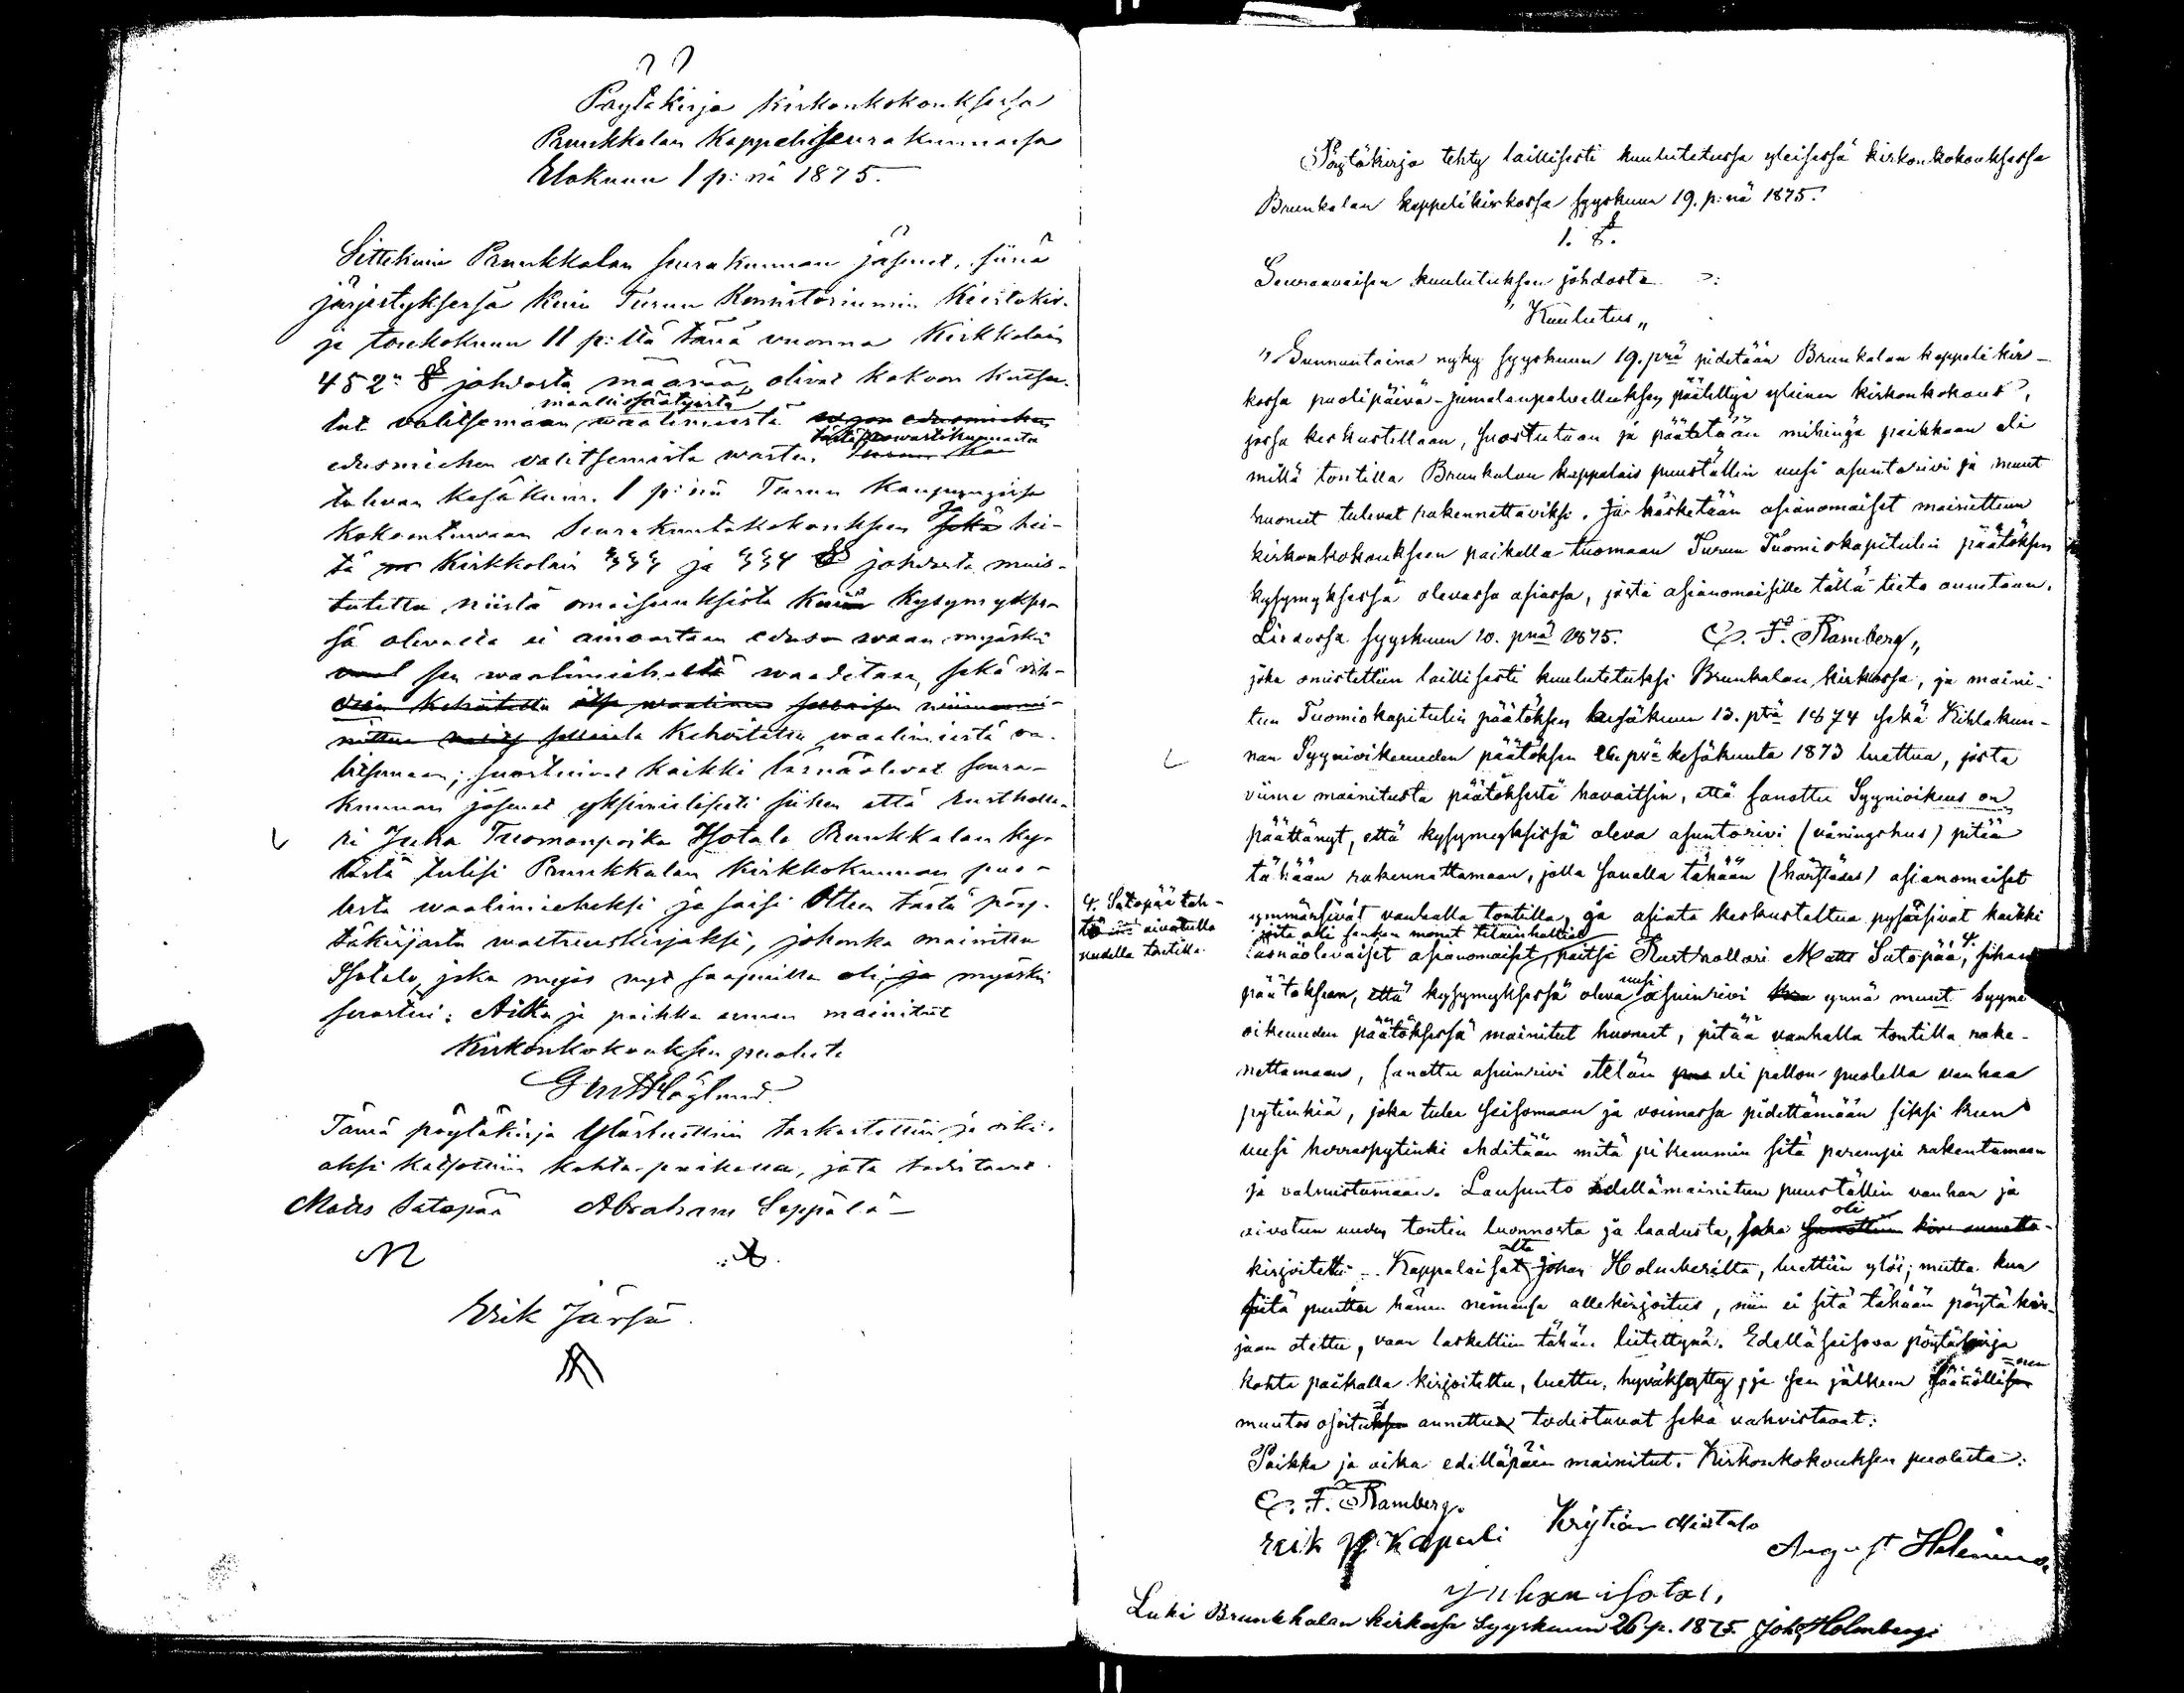 Pöytäkirja kirkonkokouksessa
Prunkkalan Kappeliseurakunnassa
Elokuun 1 p:nä 1875.
Sittekuin Prunkkalan seurakunnan jäsenet, siinä
järjestyksessä kuin Turun Konsistoriumin Kiertokir-
je toukokuun 11 p:ltä tänä vuonna Kirkkolain
452n § johdosta määrää, olivat kokoon kutsu-
tut valitsemaan maallissäätyistä waalimiestä
edusmiehen valitsemista warten tästä prowastikunnasta
tulevan kesäkuun 1 p:nä Turun kaupungissa
kokoontuvaan Seurakuntakokouksen ja hei-
tä Kirkkolain ja § johdosta muis-
tutettu niistä omaisuuksista kuin kysymykses-
sä olevalta ei ainoastaan edus- waan myöskin
sen waalimieheltä waaditaan, sekä
kehoitettu waalimiestä va-
litsemaan; suostuivat kaikki läsnäolevat seura-
kunnan jäsenet yksimielisesti siihen että Rustholla-
ri Juha Tuomanpoika Isotalo Prunkkalan ky-
lästä tulisi Prunkkalan kirkkokunnan puo-
lesta waalimieheksi ja saisi Otteen tästä pöy-
täkirjasta waltuuskirjaksi, johonka mainittu
Isotalo, joka myös nyt saapuvilla oli, myöskin
suostui; Aika ja paikka ennen mainitut
Kirkonkokouksen puolesta
G Höglund
Tämä pöytäkirja ylösluettiin tarkastettiin ja oike-
aksi katsottiin kohta paikalla, jota todistavat
Matts Satopää Abraham Seppälä
M A
Erik Järsä
Pöytäkirja tehty laillisesti kuulutetussa yleisessä kirkonkokouksessa
Brunkalan kappelikirkossa syyskuun 19. p:nä 1875.
1. §.
Seuraavaisen kuulutuksen johdosta :
"Kuulutus"
"Sunnuntaina nyky syyskuun 19. pnä pidetään Brunkalan kappelikir-
kossa puolipäivä-jumalanpalvelluksen päätettyä yleinen kirkonkokous,
jossa keskustellaan, suostutaan ja päätetään mihingä paikkaan eli
millä tontilla Brunkalan kappalais puuställin uusi asuntorivi ja muut
huoneet tulevat rakennettaviksi. Ja käsketään asianomaiset mainittuun
kirkonkokouksen paikalla tuomaan Turun Tuomiokapitulin päätöksen
kysymyksessä olevassa asiassa, josta asianomaisille tällä tieto annetaan.
Liedossa syyskuun 10. pnä 1875. F. Ramberg"
joka onistettiin laillisesti kuulutetuksi Brunkalan kirkossa, ja maini-
tun Tuomiokapitulin päätöksen kesäkuun 13. ptä 1874 sekä Kihlakun-
nan Syynioikeuden päätöksen 26. ptä kesäkuuta 1873 luettua, josta
viime mainitusta päätöksestä havaitsin, että sanottu Syynioikeus on
päättänyt, että kysymyksissä oleva asuntorivi (våningshus) pitää
tähään rakennettamaan, jolla sanalla tähään (härstädes) asianomaiset
ymmärsivät vanhalla tontilla, ja asiata keskusteltua pysäisivät kaikki
läsnäolevaiset asianomaiset, joita oli monet tilainhaltiat, paitsi Rusthollari Matts Satopää, 4. siihen
4. Satopää tah-
toi aivotulla
uudella tontilla
päätökseen, että kysymyksessä oleva uusi asuinrivi ynnä muut syyni
oikeuden päätöksessä mainitut huoneet, pitää vanhalla tontilla rake-
nettamaan, sanottu asuinrivi etelän eli pellon puolella vanhaa
pytinkiä, joka tulee seisomaan ja voimassa pidettämään siksi kun
uusi herraspytinki ehditään mitä pikemmin sitä parempi rakentamaan
ja valmistamaan. Lausunto edellämainitun puuställin vanhan ja
aivotun uuden tontin luonnosta ja laadusta, joka oli
kirjoitettu Kappalaiselta Johan Holmberilta, luettiin ylös; mutta kun
siitä puuttuu hänen nimensä allekirjoitus, niin ei sitä tähään pöytäkir-
jaan otettu, vaan laskettiin tähän liitettynä. Edelläseisova pöytäkirja
kohta paikalla kirjoitettu, luettu, hyväksytty, ja sen jälkeen säännöllinen
muutos osoitus annettu todistavat sekä vahvistavat:
Paikka ja aika edelläpäin mainitut. Kirkonkokouksen puolesta:
F. Ramberg.
Krystian
August Helenius
Juhan isotal
Luki Brunkkalan kirkossa Syyskuun 26 p. 1875. Joh Holmberg